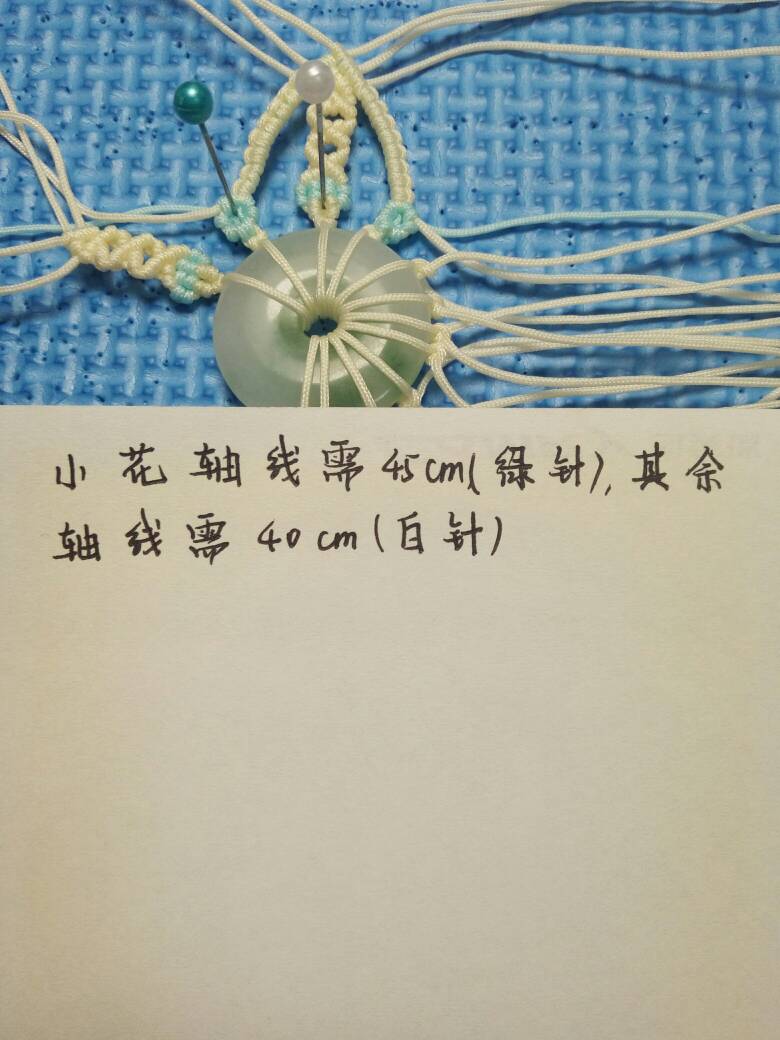 小花轴线需45cm(绿针),其余
轴线需40cm(白针)